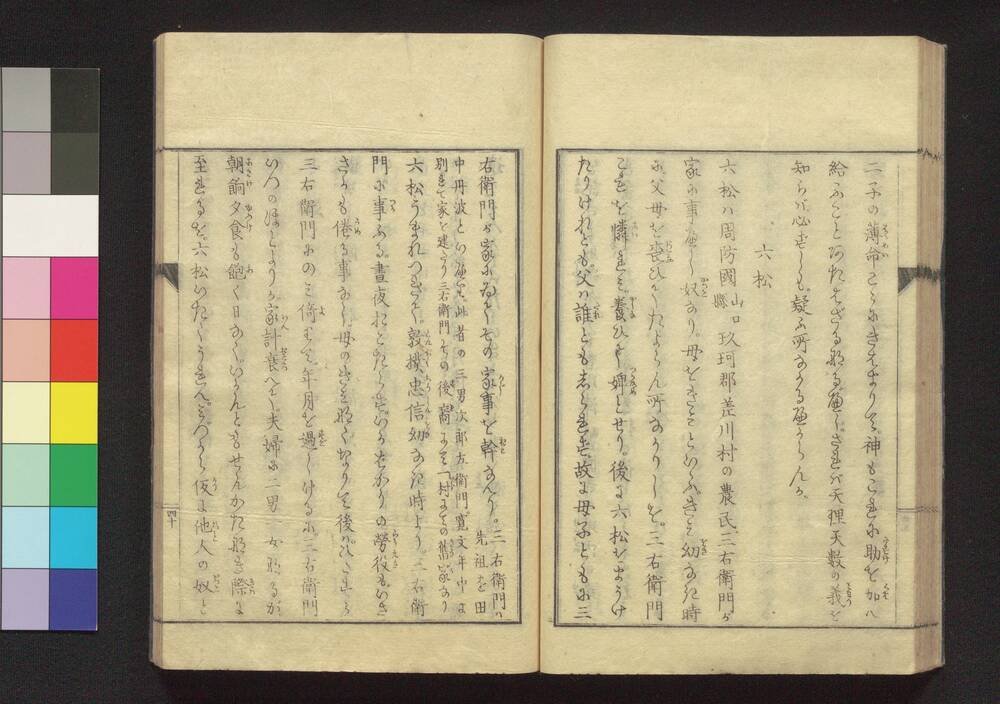 二子の薄命こゝにきはまりて、神もこれに助を加へ
給ふこと、あたはざるなるべし。されば天理天數の義を
知らバ必ずしも、疑ふ所なかるべからんか。
六松
六松ハ周防國山口縣玖珂郡荒川村の農民三右衛門が
家に事へし奴なり。母をきさといふ。きさ幼なき時
に父母を喪ひて、たよらん所なかりしを。三右衛門
これを憐れみ、養ひて婢とせり。後に六松をまうけ
たりけれども、父ハ誰ともしられず、故に母子ともに三
右衛門が家にゐて、その家事を幹なへり。三右衛門ハ
先祖を田
中丹波といへり。此者の三男次郎左衛門、寛文年中に
別れて家を建たり。三右衛門ハその後裔にて、一村にての舊家なり
六松うまれつき、敦撲忠信、幼なき時より。三右衛
門に事ふる。晝夜おこたらず。いかばかりの勞役もいさ
さかも倦る事なし。母のきさなくなりて後ハ、ひたすら
三右衛門にのミ倚りて、年月を過しけるに。三右衛門
いつのほとよりか家計衰へて、夫婦に二男一女なるが
朝餉夕食も飽く日なく。いかんともせんかたなき際に
至れるを。六松いたくうれへ、みづから仮に他人の奴と
四十